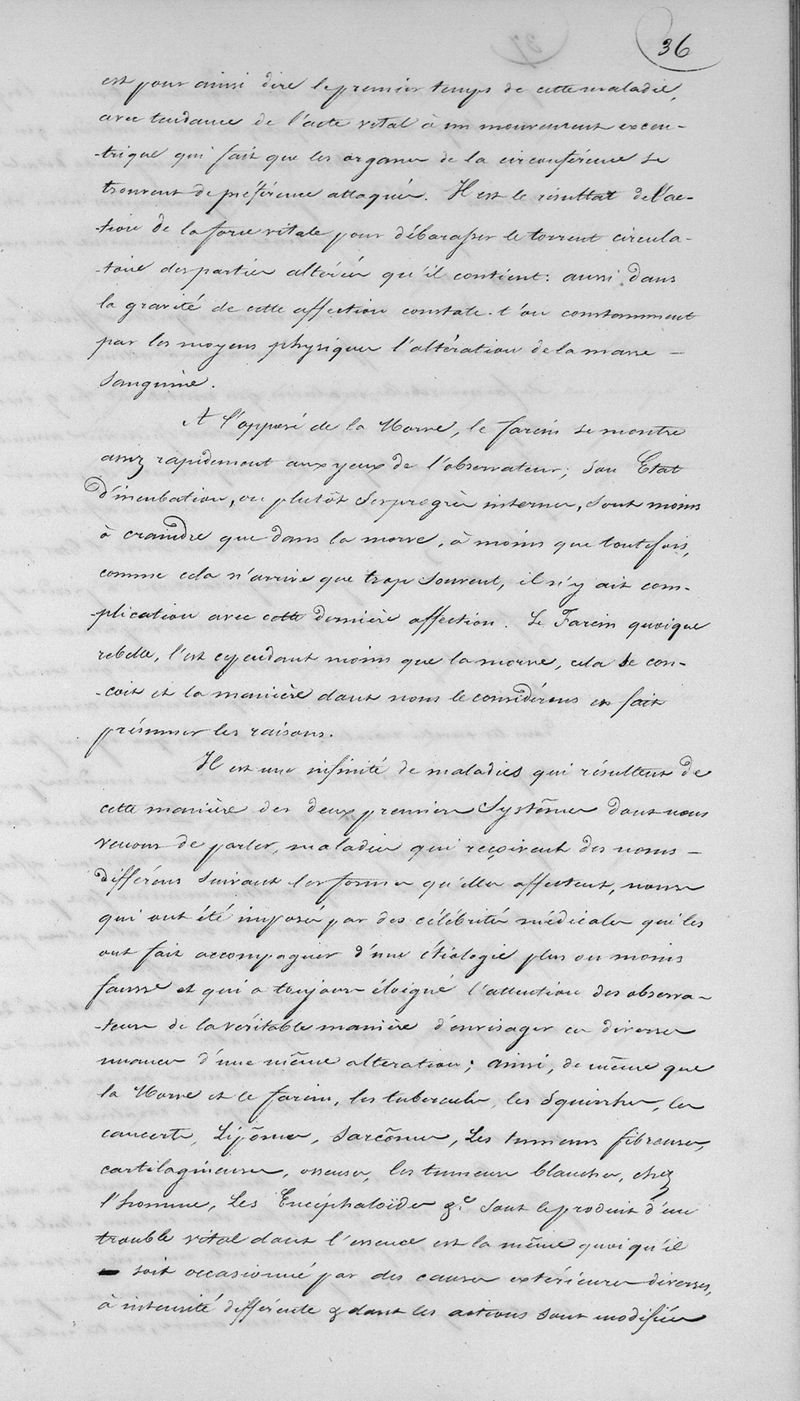 36
est pour ainsi dire le premier temps de cette maladie,
avec tendance de l'acte vital à un mouvement excen-
-trique qui fait que les organes de la circonférence se
trouvent de préférence attaqués. Il est le résultat de l'ac-
-tion de la force vitale pour débarasser le torrent circula-
-toire des parties altérées qu'il contient : aussi dans
la gravité de cette affection constate-t'on constamment
par les moyens physiques l'altération de la masse —
sanguine.
A l'opposé de la Morve, le farcin se montre
assez rapidement aux yeux de l'observateur ; son Etat
d'incubation, ou plutôt ses progrès internes, sont moins
à craindre que dans la morve, à moins que toutefois,
comme cela n'arrive que trop souvent, il n'y ait com-
-plication avec cette dernière affection. Le Farcin quoique
rebelle, l'est cependant moins que la morve, cela se con-
-coit et la manière dont nous le considérons en fait
présumer les raisons.
Il est une infinité de maladies qui résultent de
cette manière des deux premiers Systêmes dont nous
venons de parler, maladies qui reçoivent des noms —
différens suivant les formes qu'elles affectent, noms
qui ont été imposés par des célébrités médicales qui les
ont fait accompagner d'une étiologie plus ou moins
fausse et qui a toujours éloigné l'attention des observa-
-teurs de la véritable manière d'envisager ces diverses
nuances d'une même alteration ; ainsi, de même que
la Morve et le farcin, les tubercules, les Squirrhes, les
cancers, Lipômes, Sarcômes, Les tumeurs fibreuses,
cartilagineuses, osseuses, les tumeurs blanches, chez
l'homme, Les Encéphaloïdes &c. sont le produit d'un
trouble vital dont l'essence est la même quoiqu'il
— soit occasionné par des causes extérieures diverses,
à intensité différente & dont les actions sont modifiées